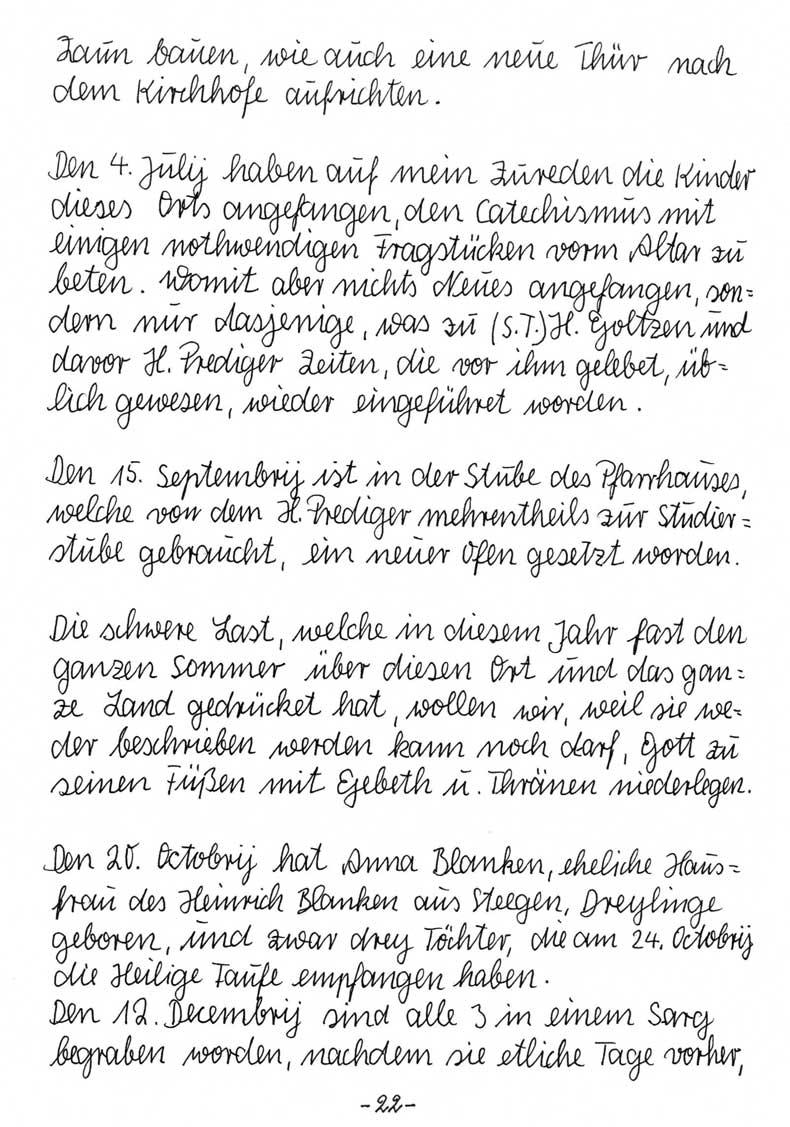 Zaun bauen, wie auch eine neue Thür nach
dem Kirchhofe aufrichten.
Den 4. Julij haben auf mein Zureden die Kinder
dieses Orts angefangen, den Catechismus mit
einigen nothwendigen Fragstücken vorm Altar zu
beten. Womit aber nichts Neues angefangen, son=
dern nur dasjenige, was zu (S.T.) H. Goltzen und
davor H. Prediger Zeiten, die vor ihm gelebet, üb=
lich gewesen, wieder eingeführet worden.
Den 15. Septembrij ist in der Stube des Pfarrhauses,
welche von dem H. Prediger mehrentheils zur Studier=
stube gebraucht, ein neuer Ofen gesetzt worden.
Die schwere Last, welche in diesem Jahr fast den
ganzen Sommer über diesen Ort und das gan=
ze Land gedrücket hat, wollen wir, weil sie we=
der beschrieben werden kann noch darf, Gott zu
seinen Füßen mit Gebeth u. Thränen niederlegen.
Den 20. Octobrij hat Anna Blanken, eheliche Haus=
frau des Heinrich Blanken aus Steegen, Dreylinge
geboren, und zwar drey Töchter, die am 24. Octobrij
die Heilige Taufe empfangen haben.
Den 12. Decembrij sind alle 3 in einem Sarg
begraben worden, nachdem sie etliche Tage vorher,
-22-